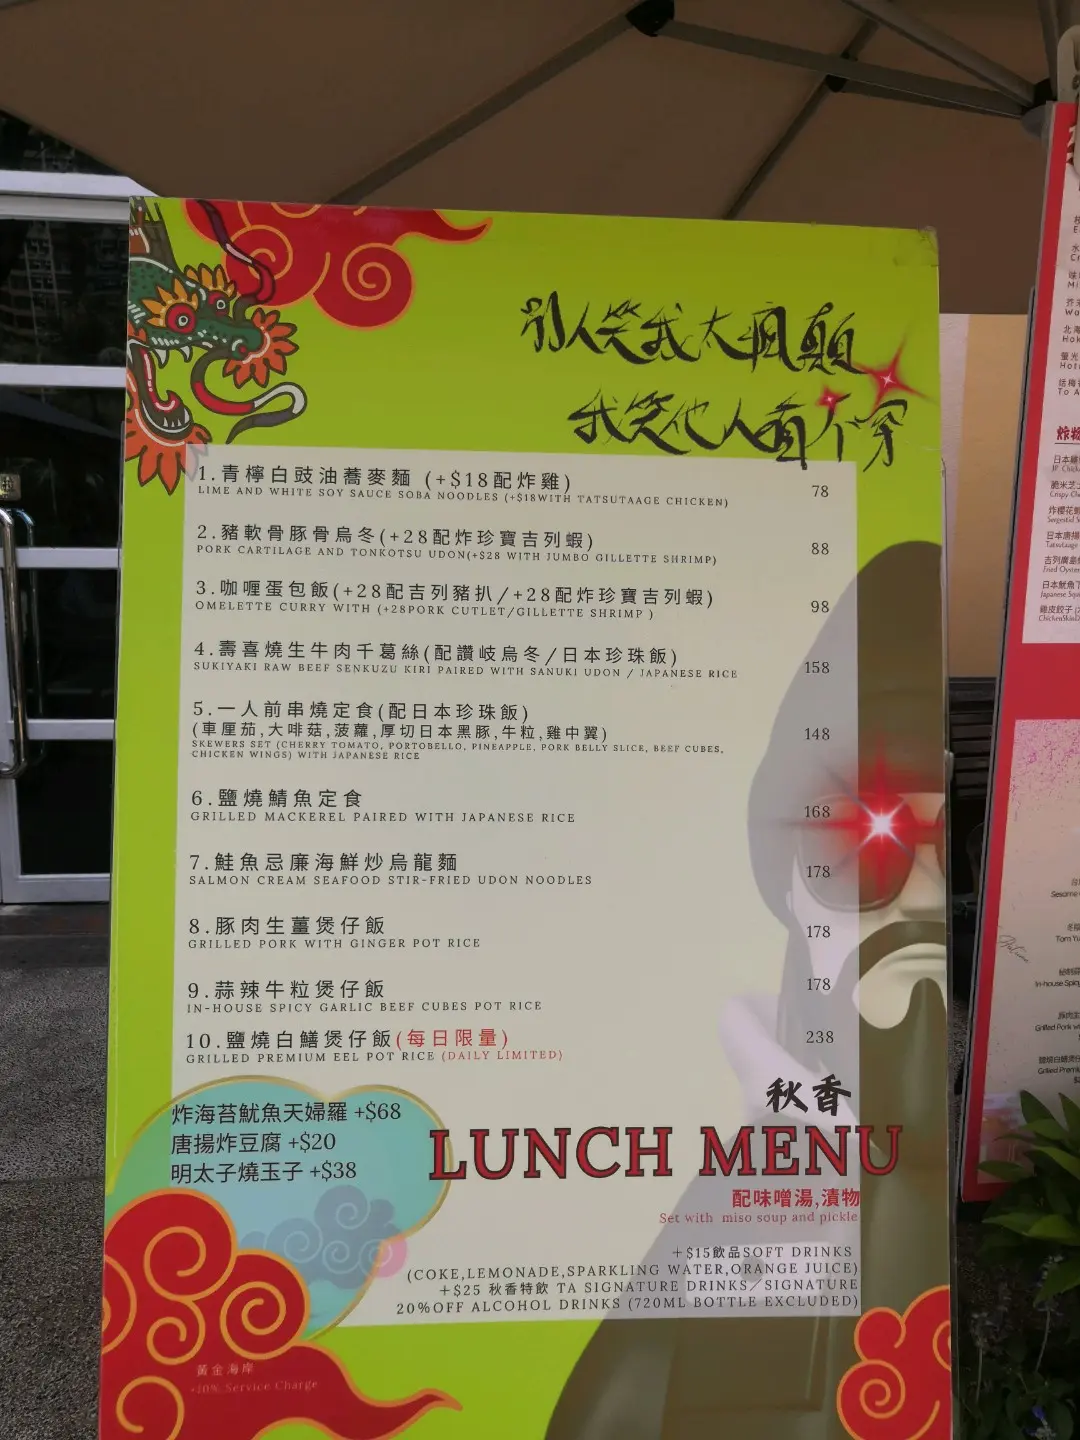 別人笑我太瘋顛
我笑他人看不穿
1.青檸白豉油蕎麥麵 (+$18配炸雞)
LIME AND WHITE SOY SAUCE SOBA NOODLES (+$18WITH TATSUTAAGE CHICKEN)
78
2.豬軟骨豚骨烏冬(+28配炸珍寶吉列蝦)
PORK CARTILAGE AND TONKOTSU UDON(+$28 WITH JUMBO GILLETTE SHRIMP)
88
3.咖喱蛋包飯(+28配吉列豬扒/+28配炸珍寶吉列蝦)
OMELETTE CURRY WITH (+28PORK CUTLET/GILLETTE SHRIMP )
98
4.壽喜燒生牛肉千葛絲(配讚岐烏冬/日本珍珠飯)
SUKIYAKI RAW BEEF SENKUZU KIRI PAIRED WITH SANUKI UDON / JAPANESE RICE
158
5.一人前串燒定食(配日本珍珠飯)
(車厘茄,大啡菇,菠蘿,厚切日本黑豚,牛粒,雞中翼)
SKEWERS SET (CHERRY TOMATO, PORTOBELLO, PINEAPPLE, PORK BELLY SLICE, BEEF CUBES,
CHICKEN WINGS) WITH JAPANESE RICE
148
6.鹽燒鯖魚定食
GRILLED MACKEREL PAIRED WITH JAPANESE RICE
168
7.鮭魚忌廉海鮮炒烏龍麵
SALMON CREAM SEAFOOD STIR-FRIED UDON NOODLES
178
8.豚肉生薑煲仔飯
GRILLED PORK WITH GINGER POT RICE
178
9.蒜辣牛粒煲仔飯
IN-HOUSE SPICY GARLIC BEEF CUBES POT RICE
178
10.鹽燒白鱔煲仔飯(每日限量)
GRILLED PREMIUM EEL POT RICE (DAILY LIMITED)
238
炸海苔魷魚天婦羅 +$68
唐揚炸豆腐 +$20
明太子燒玉子 +$38
秋香
LUNCH MENU
配味噌湯,漬物
Set with miso soup and pickle
+$15飲品SOFT DRINKS
(COKE,LEMONADE,SPARKLING WATER,ORANGE JUICE)
+$25 秋香特飲 TA SIGNATURE DRINKS/ SIGNATURE
20%OFF ALCOHOL DRINKS (720ML BOTTLE EXCLUDED)
黃金海岸
+10% Service Charge